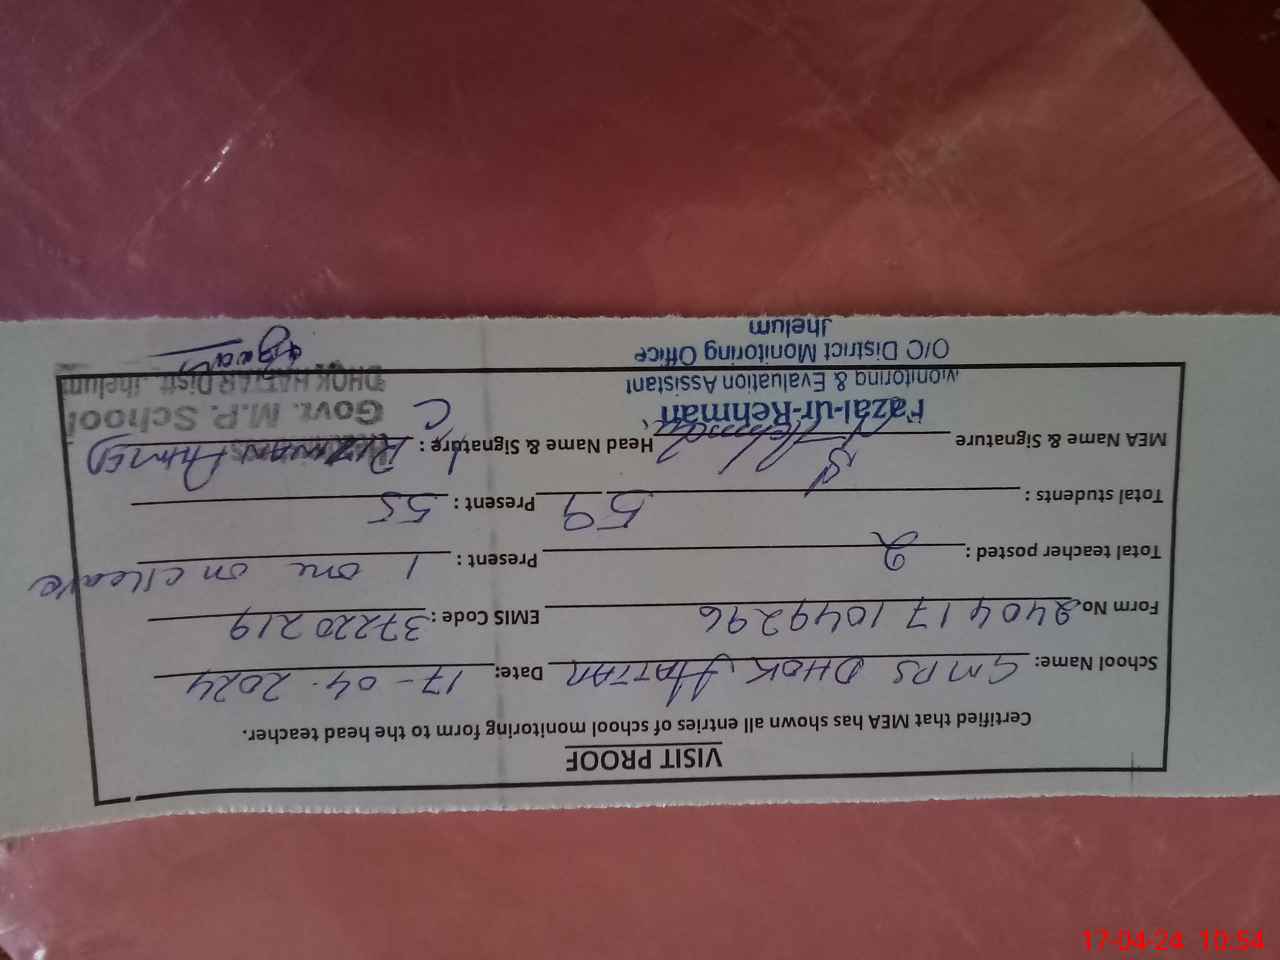 VISIT PROOF
Certified that MEA has shown all entries of school monitoring form to the head teacher.
School Name: GMPS DHOK HATTAR Date: 17-04-2024
Form No. 240417 1049296 EMIS Code: 37220219
Total teacher posted: 2 Present: 1 one on cleave
Total students: 59 Present: 55
MEA Name & Signature Head Name & Signature: RIZWAN AHMED
Fazal-ur-Rehman
Govt. M.P. School
Monitoring & Evaluation Assistant
DHOK HATTAR Distt. Jhelum
O/C District Monitoring Office
Jhelum
17-04-24 10:54